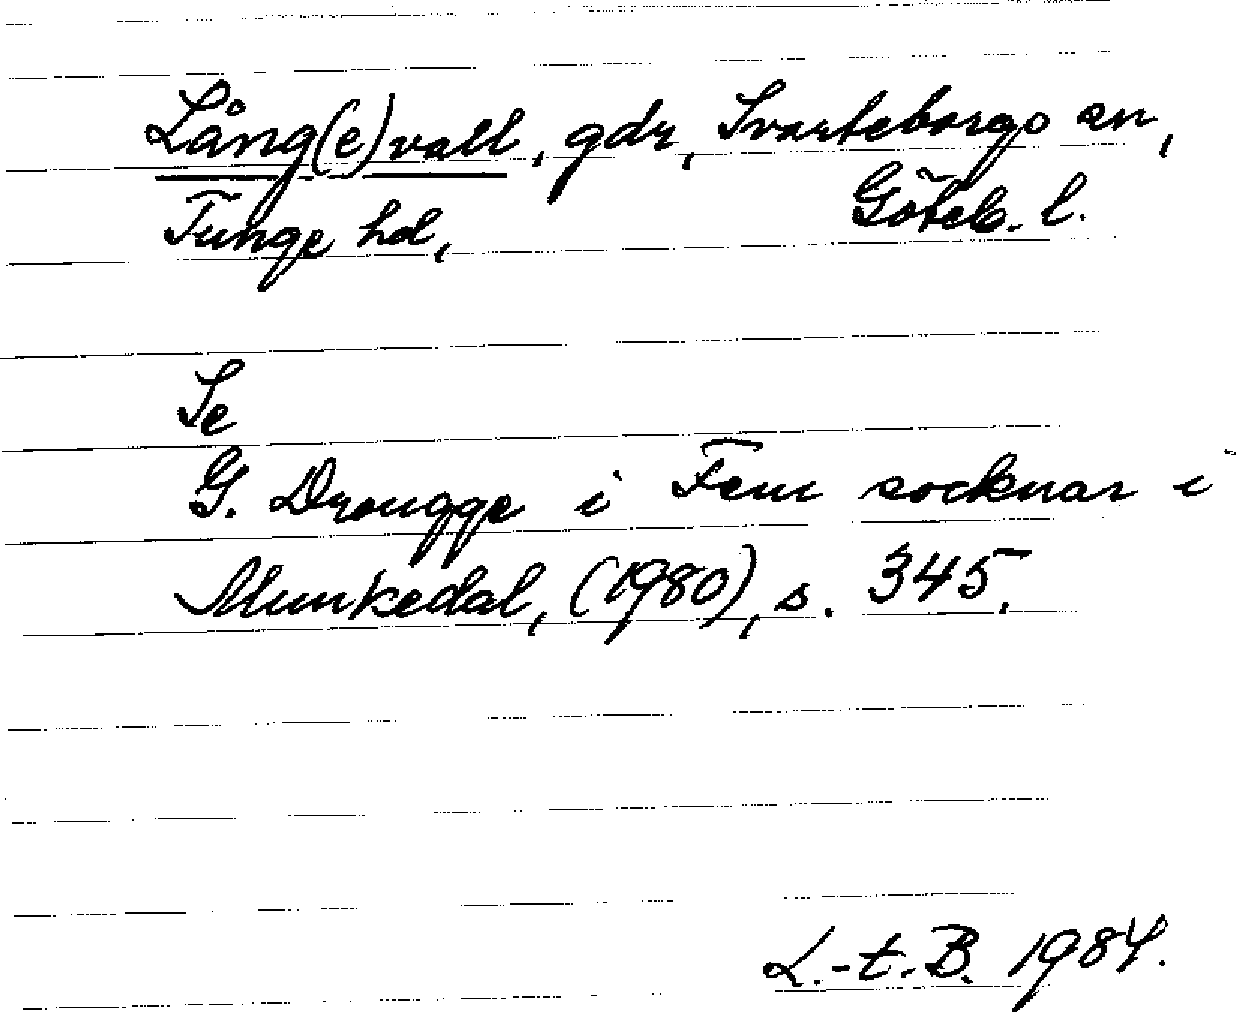 Lång(e)vall, gdr, Svarteborgs sn,
Tunge hd, Göteb. l.
Se
G. Drougge i Fem socknar i
Munkedal, (1980), s. 345.
L.-t. B. 1984.